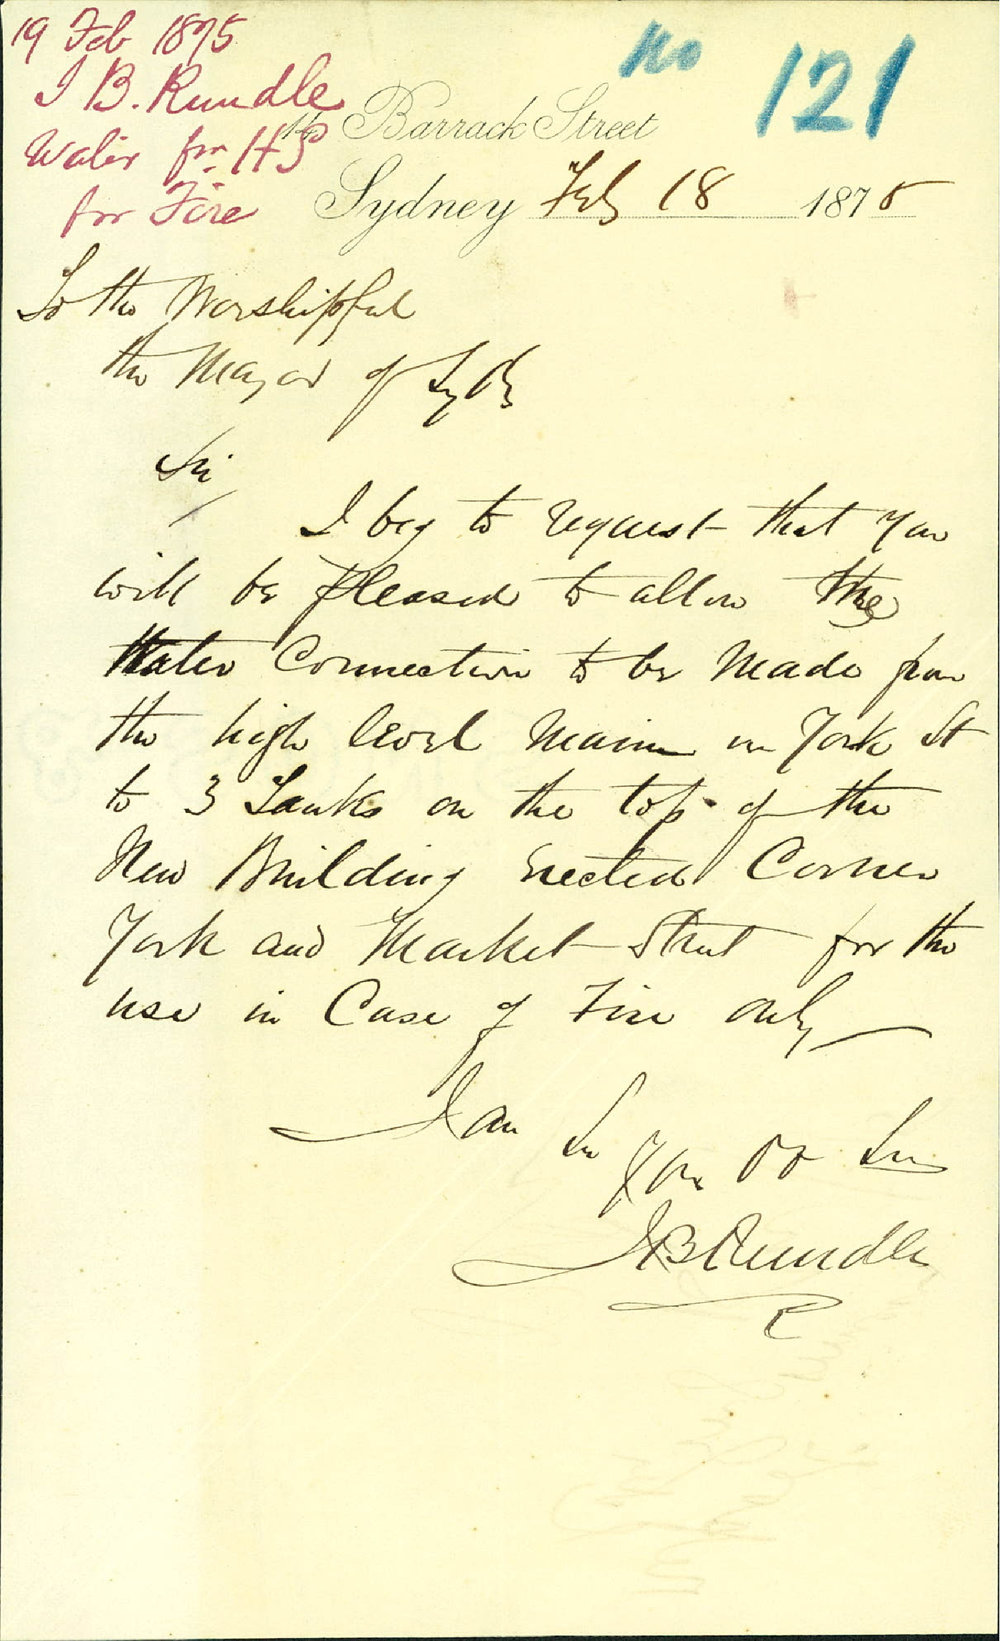 19 Feb 1875
J B. Rundle
Water fm HP
for Fire
No 121
16 Barrack Street
Sydney Feb 18 1875
To the Worshipful
the Mayor of Sydy
Sir
I beg to request that you
will be pleased to allow the
Water Connection to be made from
the high level main in York St
to 3 Tanks on the top of the
New Building Erected Corner
York and Market Street for the
use in Case of Fire only
I am
Sir
Your Ob Ser
J B Rundle
R